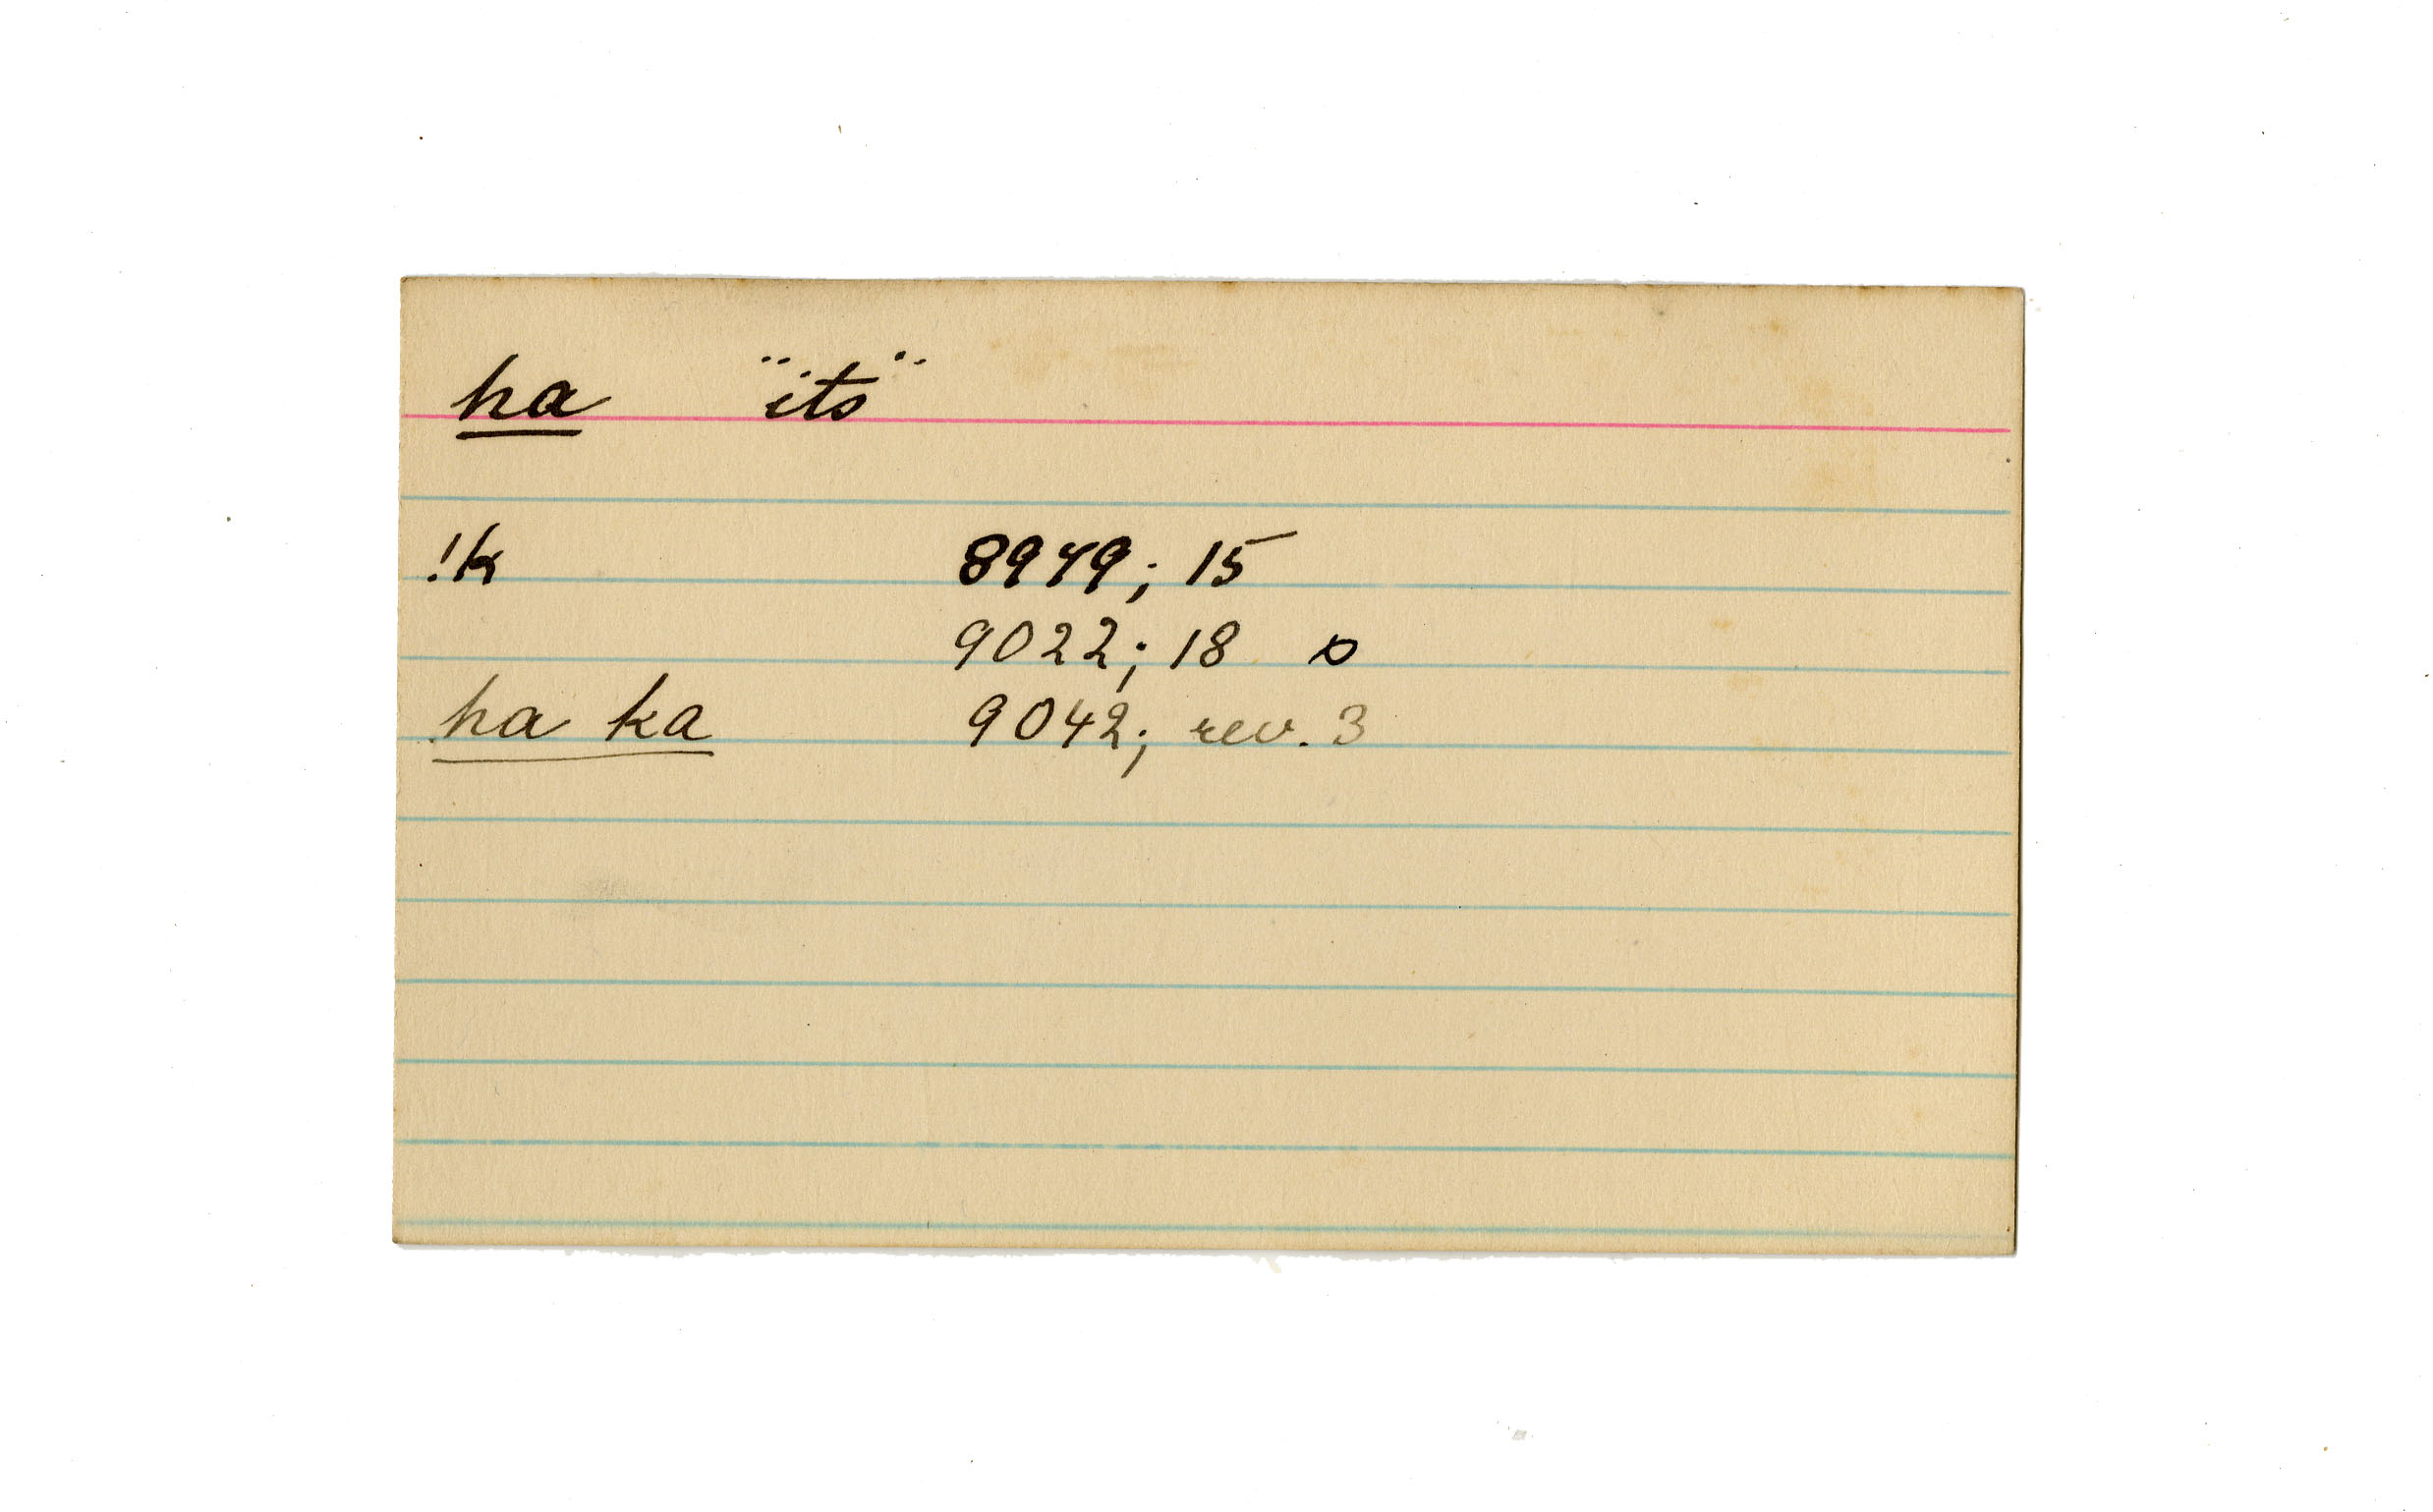 ha "its"
!k 8979; 15
9022; 18
ha ka 9042; rev. 3